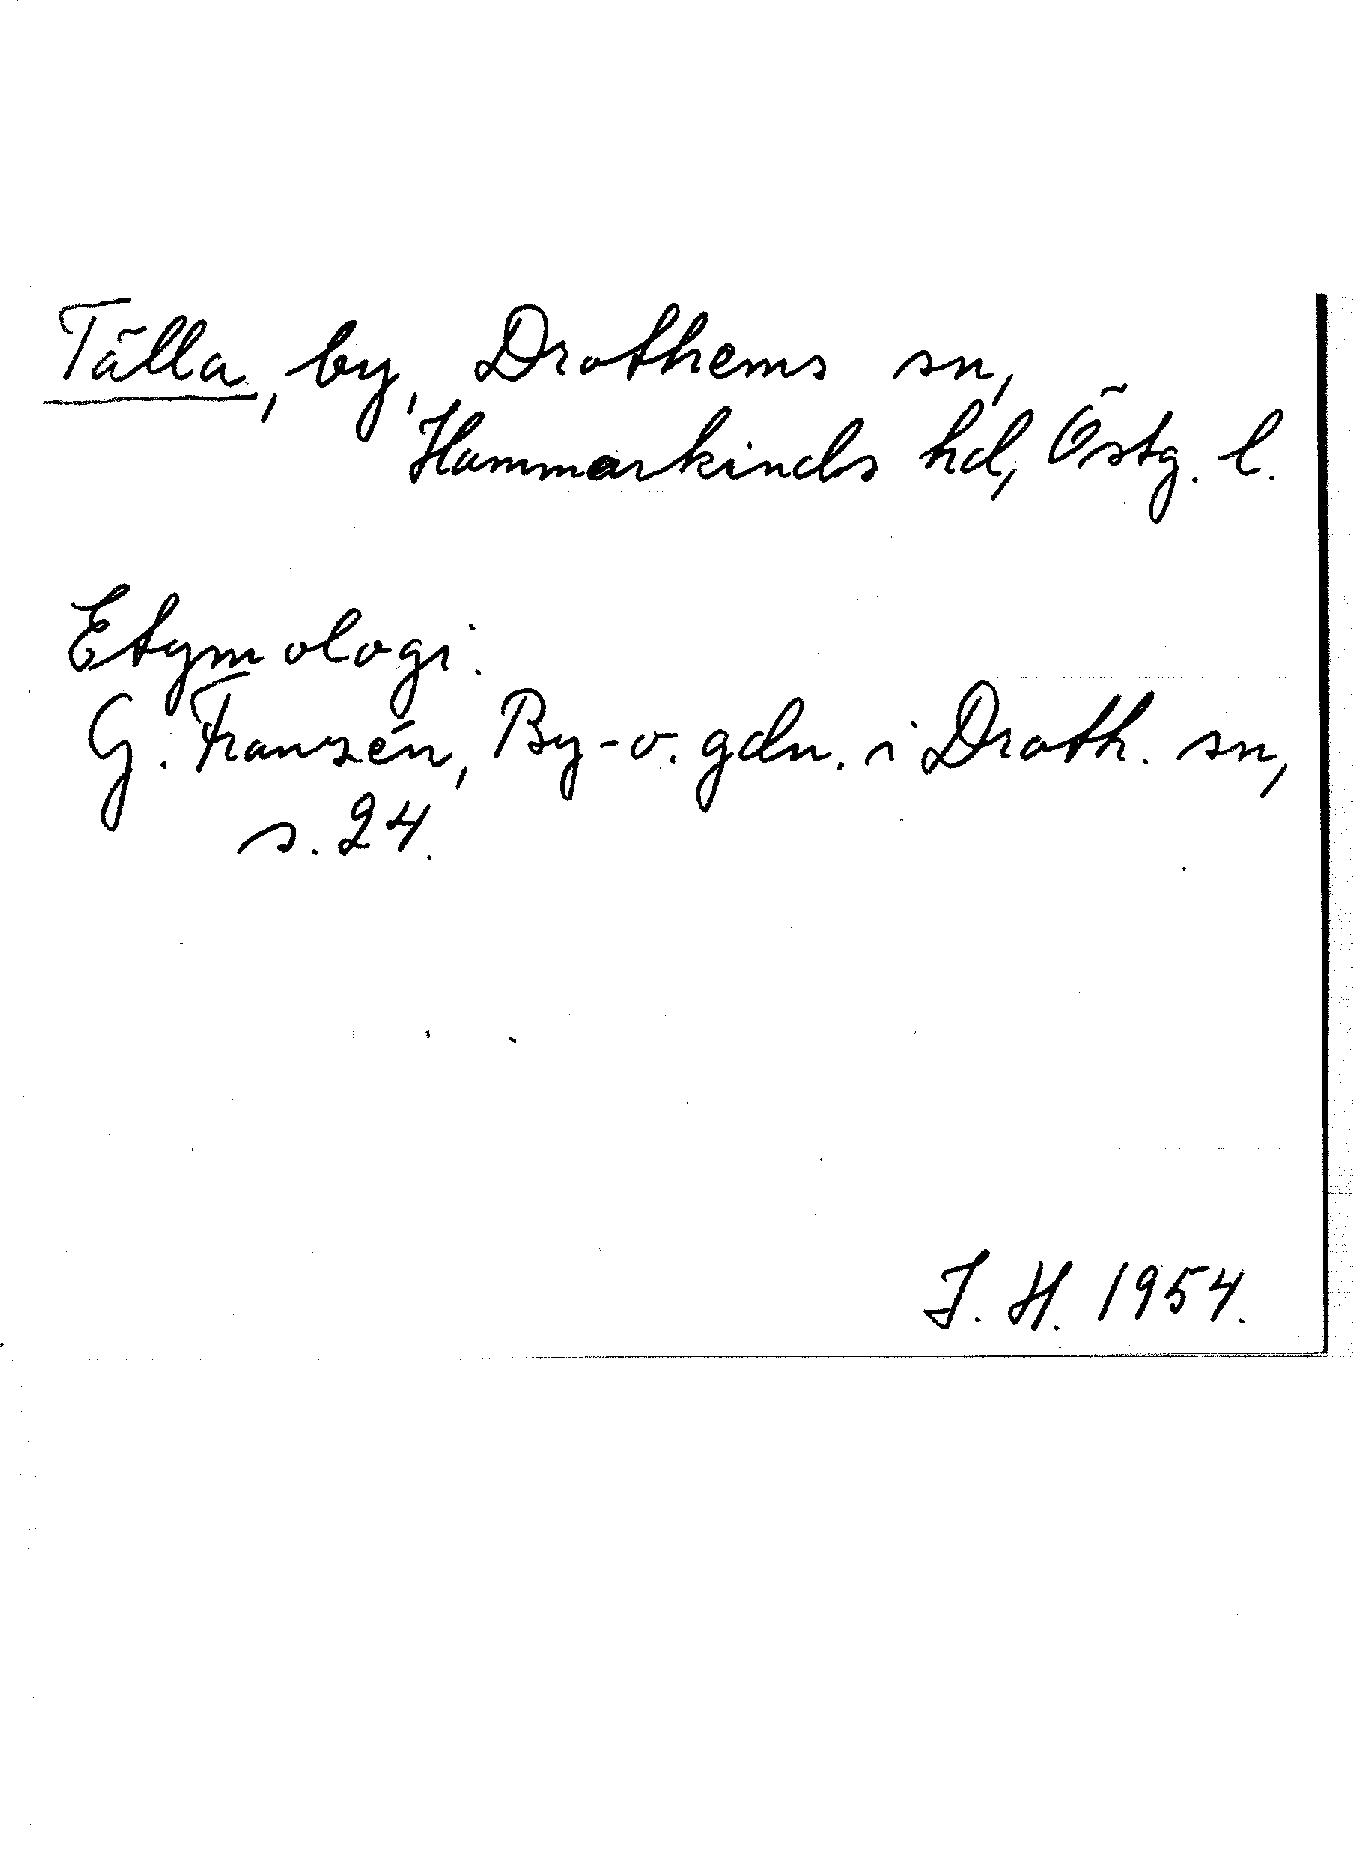 Tälla, by, Drothems sn,
Hammarkinds hd, Östg. l.
Etymologi.
G. Franzén, By- o. gdn. i Droth. sn,
s. 24.
I. H. 1954.